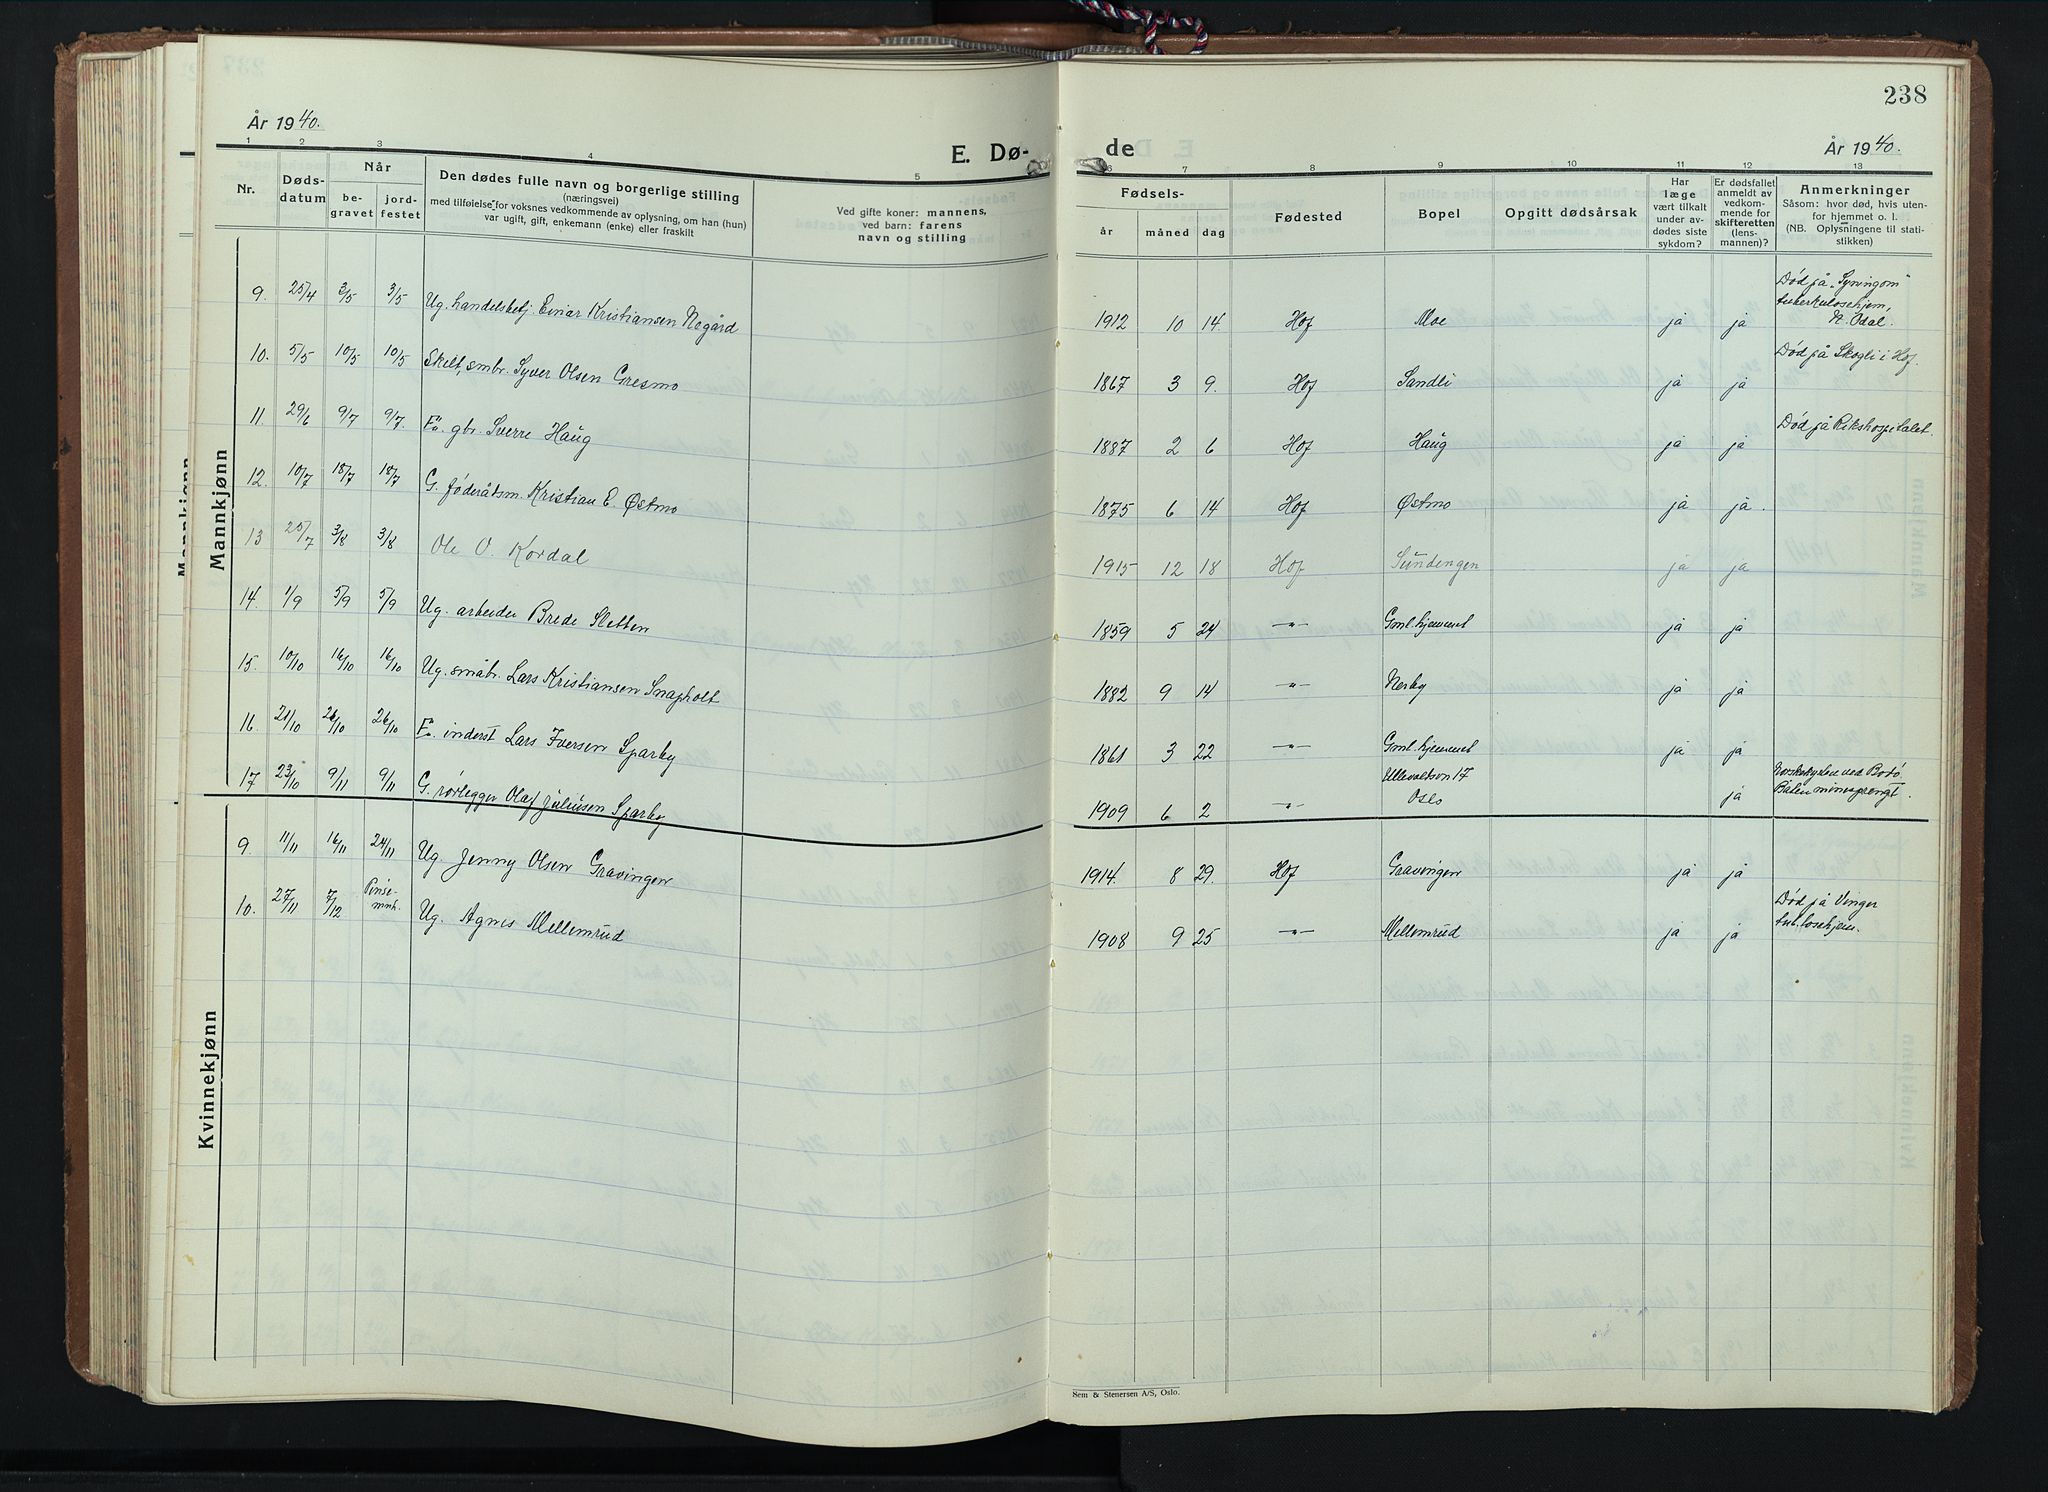 238
År 1940.
E. Dø-
de
År 1940.
1 2 3 4 5
6 7 8 9 10 11 12 13
Nr.
Døds-
datum
Når
be-
gravet
jord-
festet
Den dødes fulle navn og borgerlige stilling
(næringsvei)
med tilføielse for voksnes vedkommende av oplysning, om han (hun)
var ugift, gift, enkemann (enke) eller fraskilt
Ved gifte koner: mannens,
ved barn: farens
navn og stilling
Fødsels-
år måned dag
Fødested
Bopel
Opgitt dødsårsak
Har
læge
vært tilkalt
under av-
dødes siste
sykdom?
Er dødsfallet
anmeldt av
vedkom-
mende for
skifteretten
(lens-
mannen)?
Anmerkninger
Såsom: hvor død, hvis uten-
for hjemmet o. l.
(NB. Oplysningene til stati-
stikken)
Mannkjønn
Mannkjønn
9. 25/4 3/5 3/5 Ug. handelsbetj. Einar Kristiansen Negård 1912 10 14. Hof Moe ja ja Død på "Syningom" tuberkulosehjem, N. Odal.
10. 5/5 10/5 10/5 Skilt, smbr. Syver Olsen Gresmo 1867 3 9. Hof Sandli ja ja Død på Skogli i Hof.
11. 29/6 9/7 9/7. F. gbr. Sverre Haug 1887 2 6 Hof Haug ja ja Død på Rikshospitalet.
12. 10/7 18/7 18/7 G. føderåtsm. Kristian E. Østmo 1875 6 14 Hof Østmo ja ja.
13 25/7 3/8 3/8 Ole O. Kordal 1915 12 18 Hof Sundengen ja ja
14. 1/9 5/9 5/9 Ug. arbeider Brede Sletten 1859 5 24 -"- Gml. hjemmet ja ja
15. 10/10 16/10 16/10 Ug. småbr. Lars Kristiansen Snapholt 1882 9 14 -"- Nerby ja ja
16. 21/10 26/10 26/10 inderst Lars Iversen Sparby 1861 3 22 -"- Gml. hjemmet ja ja
17 23/10 9/11 9/11 G. rørlegger Olaf Juliusen Sparby 1909 6 2 -"- Ullevoldsvn 17 Oslo ja ved Bodø. Båten minesprengt.
Kvinnekjønn
9. 11/11 16/11 24/11 Ug. Jenny Olsen Gravingen 1914. 8 29. Hof Gravingen ja ja
10. 27/11 7/12 Pinse- Ug. Agnes Mellemrud 1908 9 25 -"- Mellemrud ja ja Død på Vinger tub.losehjem.
Sem & Stenersen A/S, Oslo.